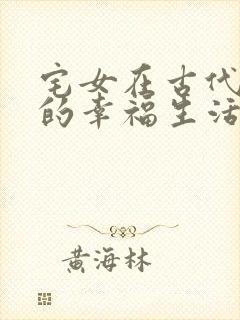 宅女在古代
的幸福生活
黄海林